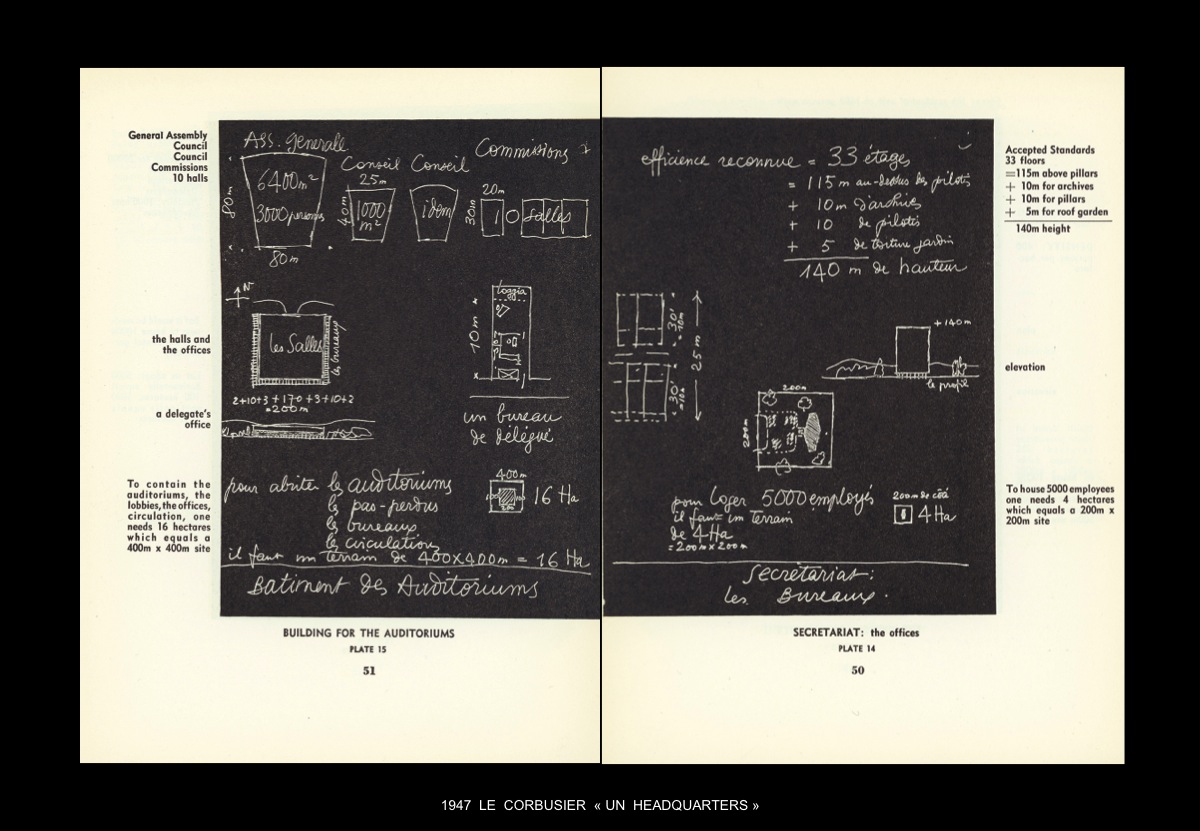 General Assembly
Council
Council
Commissions
10 halls
Ass. Generale
Conseil Conseil
Commissions
6400m²
3000
80m
80m
25m
40m
1000
m²
idem
20m
30m
10 Salles
N
the halls and
the offices
les Salles
les bureaux
2+10+3+170+3+10+2
=200m
loggia
10m
a delegate's
office
un bureau
de délégué
To contain the
auditoriums, the
lobbies, the offices,
circulation, one
needs 16 hectares
which equals a
400m x 400m site
pour abriter les auditoriums
les pas-perdus
les bureaux
la circulation
400m
16 Ha
il faut un terrain de 400x400m = 16 Ha
Batiment des Auditoriums
BUILDING FOR THE AUDITORIUMS
PLATE 15
51
efficience reconnue = 33 étages
= 115 m au-dessus des pilotis
+ 10 m d'archives
+ 10 de pilotis
+ 5 de toiture jardin
140 m de hauteur
Accepted Standards
33 floors
=115m above pillars
+ 10m for archives
+ 10m for pillars
+ 5m for roof garden
140m height
30'
=10m
25 m
30'
=10m
+140m
le profil
elevation
200m
200m
pour loger 5000 employés
il faut un terrain
de 4Ha
=200m x 200m
200m de côté
4Ha
To house 5000 employees
one needs 4 hectares
which equals a 200m x
200m site
Secretariat:
les Bureaux.
SECRETARIAT: the offices
PLATE 14
50
1947 LE CORBUSIER « UN HEADQUARTERS »